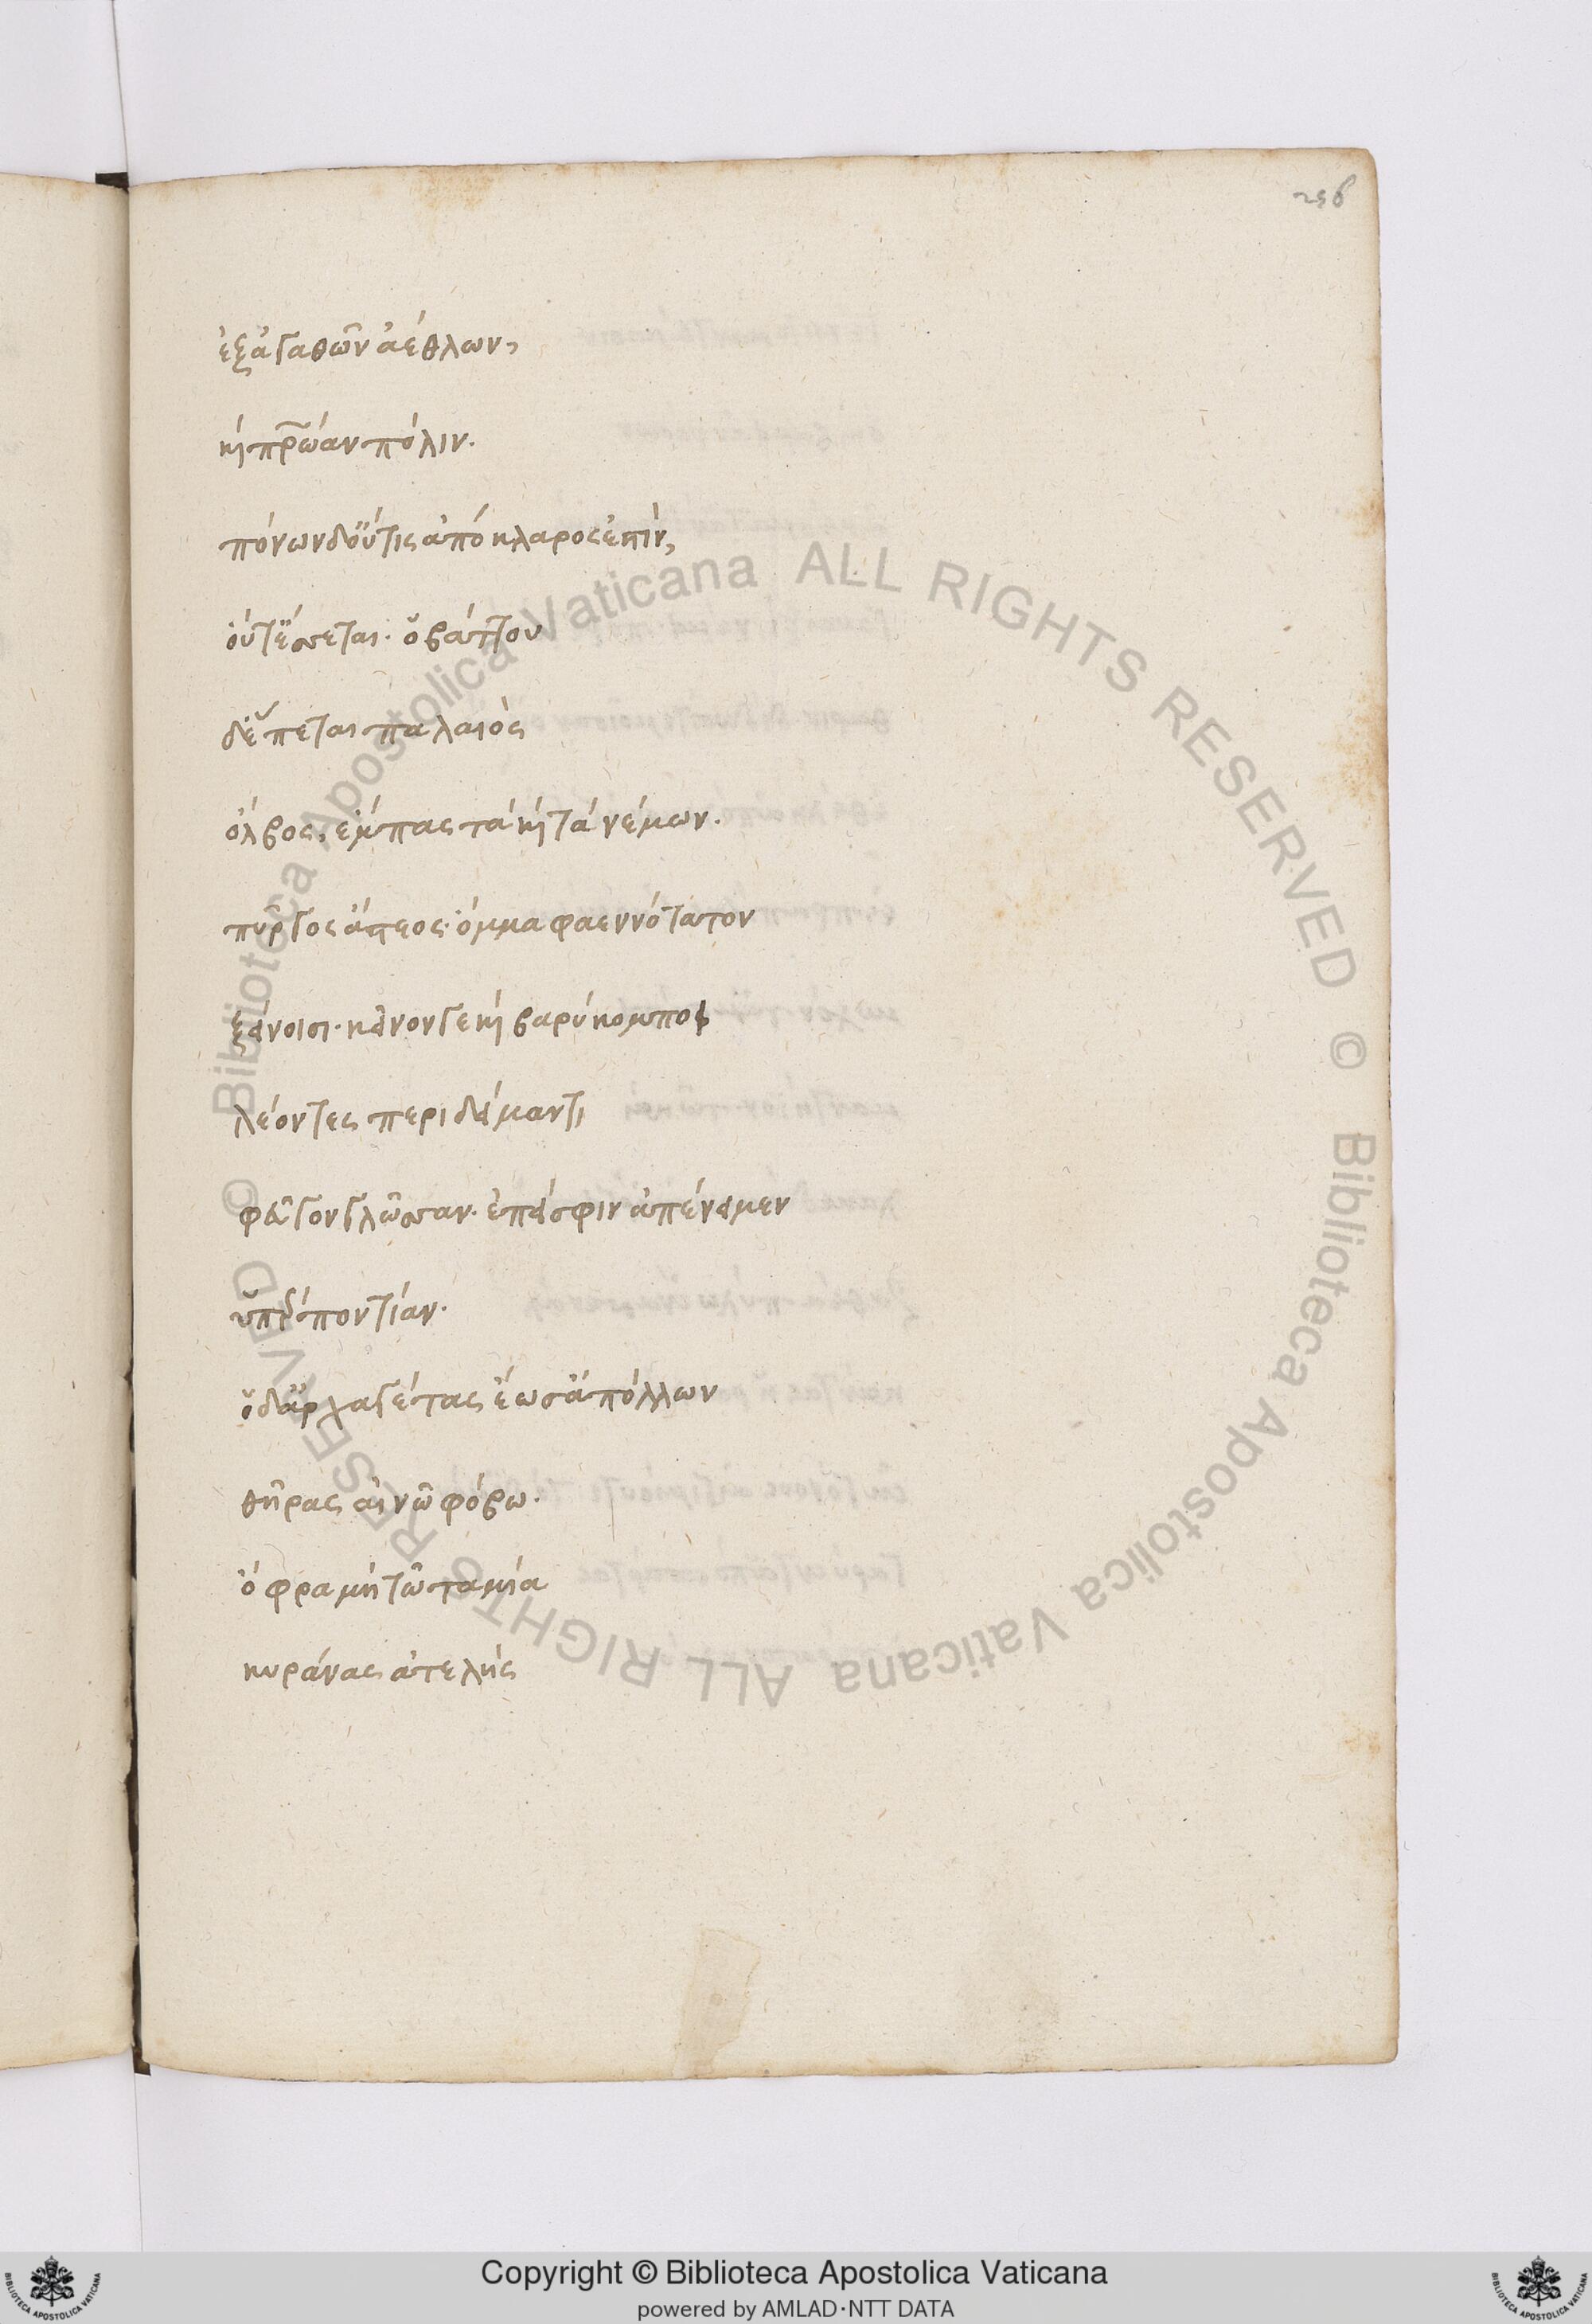 256
ἐξ ἀγαθῶν ἀέθλων,
καὶ πατρωΐαν πόλιν.
πόνων δ' οὔτις ἀπόκλαρος ἐστὶν,
οὔτ' ἔσσεται. ὁ βάττου
δ' ἕπεται παλαιὸς
ὄλβος, ἔμπας τὰ καὶ τὰ νέμων.
πύργος ἄστεος. ὄμμα φαεννότατον
ξένοισι. κεῖνόν γε καὶ βαρύκομποι
λέοντες περὶ δείματι
φεῦγον γλῶσσαν. ἐπεί σφιν ἀπένεικεν
ὑπερποντίαν.
ὁ δ' ἀρχαγέτας ἔδωκ' ἀπόλλων
θῆρας αἰνῶ φόβω.
ὄφρα μὴ τῶ ταμία
κυράνας ἀτελὴς
Biblioteca Apostolica Vaticana ALL RIGHTS RESERVED © Biblioteca Apostolica Vaticana ALL RIGHTS RESERVED ©
Copyright © Biblioteca Apostolica Vaticana
powered by AMLAD·NTT DATA
BIBLIOTECA APOSTOLICA VATICANA
BIBLIOTECA APOSTOLICA VATICANA